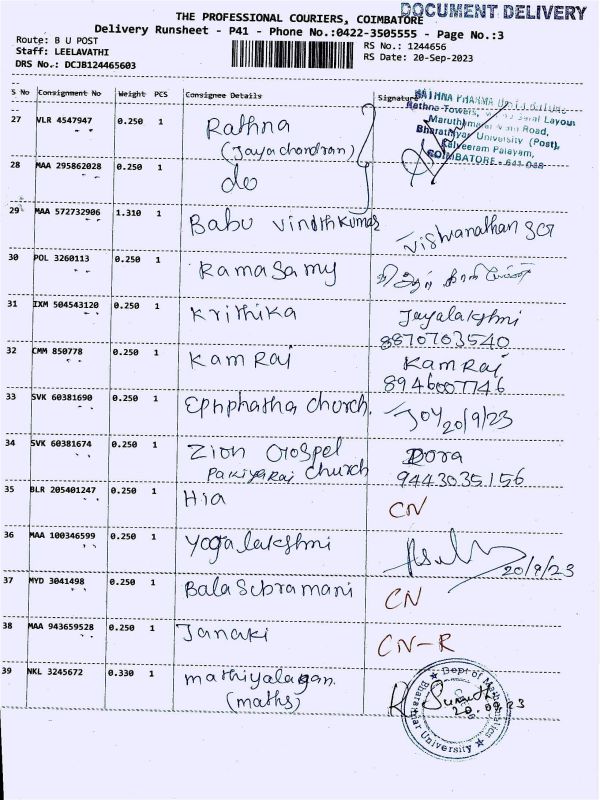 DOCUMENT DELIVERY
THE PROFESSIONAL COURIERS, COIMBATORE
Delivery Runsheet - P41 - Phone No.:0422-3505555 - Page No.:3
Route: B U POST
Staff: LEELAVATHI
DRS No.: DCJB124465603
RS No.: 1244656
RS Date: 20-Sep-2023
S No Consignment No Weight PCS Consignee Details Signature
RATHNA PHARMA
Rathna Towers, Layout
Maruthamalai Main Road,
Bharathiyar University (Post),
Kalveeram Palayam,
COIMBATORE - 641 046
27 VLR 4547947 0.250 1 Rathna
(Jayachandran)
28 MAA 295862028 0.250 1 do
29 MAA 572732906 1.310 1 Babu Vinothkumar Vishvanathan
30 POL 3260113 0.250 1 Ramasamy
31 IXM 504543120 0.250 1 Krithika Jayalakshmi
8870703540
32 CMM 850778 0.250 1 Kam Raj Kam Raj
8946007746
33 SVK 60381690 0.250 1 Ephphatha church. Joy 20/9/23
34 SVK 60381674 0.250 1 Zion Gospel Dora
Pakiyaraj church 9443035156
35 BLR 205401247 0.250 1 Hia CN
36 MAA 100346599 0.250 1 Yogalakshmi 20/9/23
37 MYD 3041498 0.250 1 Bala Subramani CN
38 MAA 943659528 0.250 1 Janaki CN-R
39 NKL 3245672 0.330 1 mathiyalagan.
(maths)
Dept of Mathematics
Bharathiar University
20.09.23